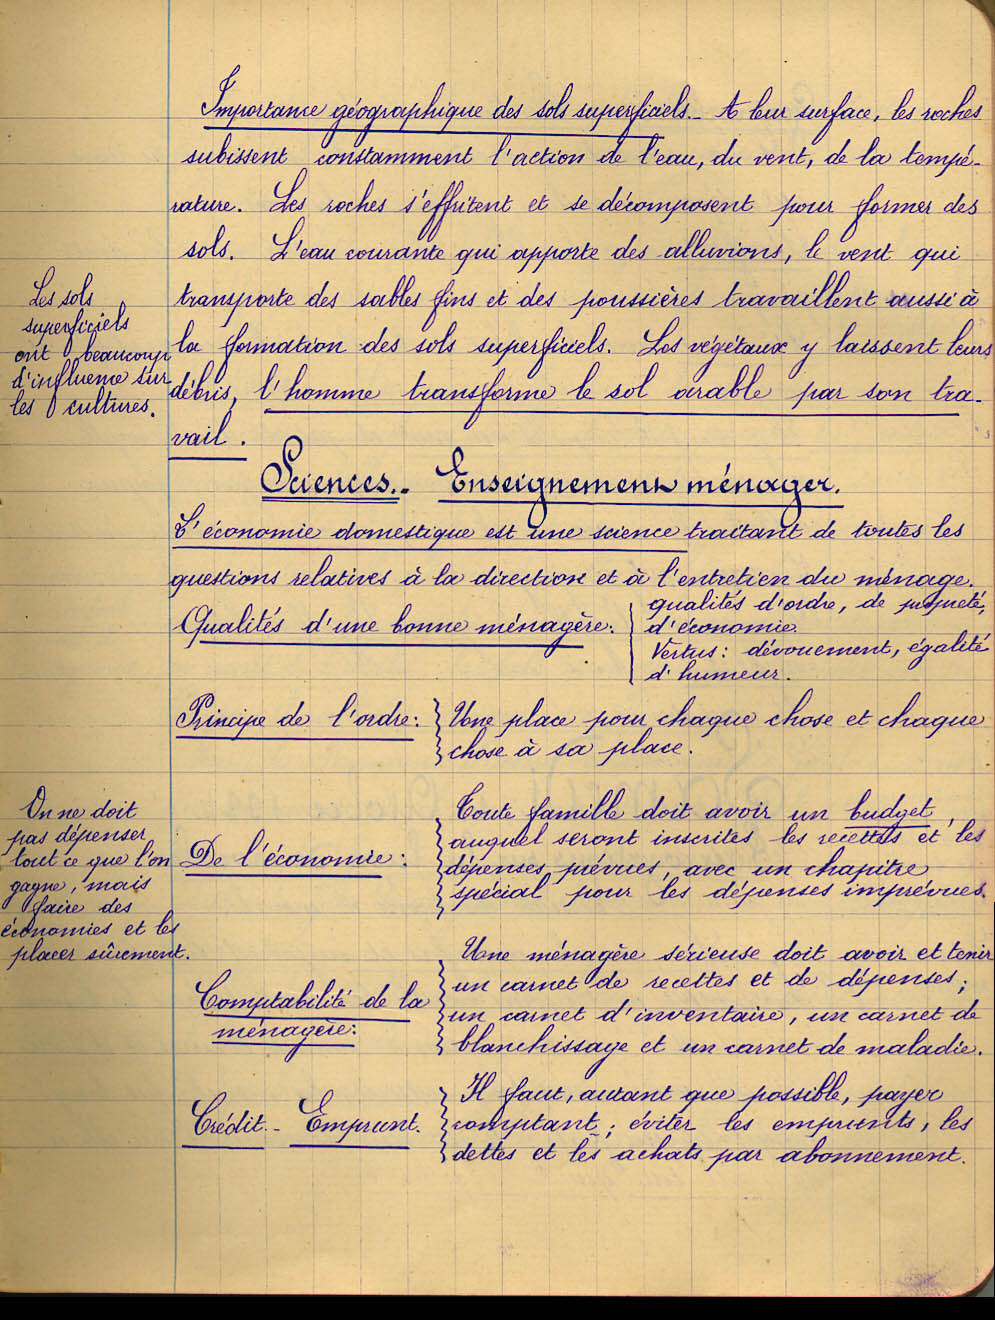 Importance géographique des sols superficiels._ A leur surface, les roches
subissent constamment l'action de l'eau, du vent, de la tempé-
rature. Les roches s'effritent et se décomposent pour former des
sols. L'eau courante qui apporte des alluvions, le vent qui
transporte des sables fins et des poussières travaillent aussi à
la formation des sols superficiels. Les végétaux y laissent leurs
débris, l'homme transforme le sol arable par son tra-
vail.
Les sols
superficiels
ont beaucoup
d'influence sur
les cultures.
Sciences._ Enseignement ménager.
L'économie domestique est une science traitant de toutes les
questions relatives à la direction et à l'entretien du ménage.
Qualités d'une bonne ménagère:
qualités d'ordre, de propreté,
d'économie.
Vertus: dévouement, égalité
d'humeur.
Principe de l'ordre:
Une place pour chaque chose et chaque
chose à sa place.
On ne doit
pas dépenser
tout ce que l'on
gagne, mais
faire des
économies et les
placer sûrement.
De l'économie:
Toute famille doit avoir un budget,
auquel seront inscrites les recettes et les
dépenses prévues, avec un chapitre
spécial pour les dépenses imprévues.
Comptabilité de la
ménagère:
Une ménagère sérieuse doit avoir et tenir
un carnet de recettes et de dépenses;
un carnet d'inventaire, un carnet de
blanchissage et un carnet de maladie.
Crédit._ Emprunt.
Il faut, autant que possible, payer
comptant; éviter les emprunts, les
dettes et les achats par abonnement.